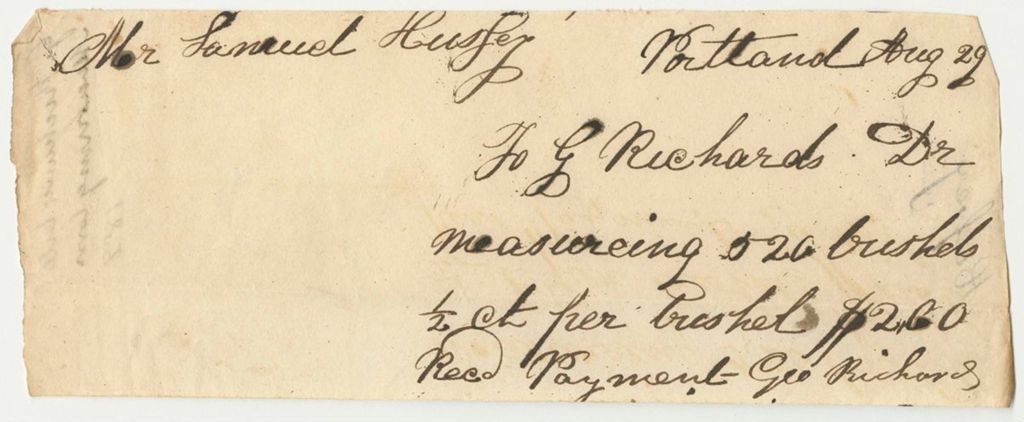 Mr Samuel Hussey Portland Aug 29
To G Richards Dr
measureing 520 bushels
½ ct per bushel $2,60
Recd Payment Geo Richards